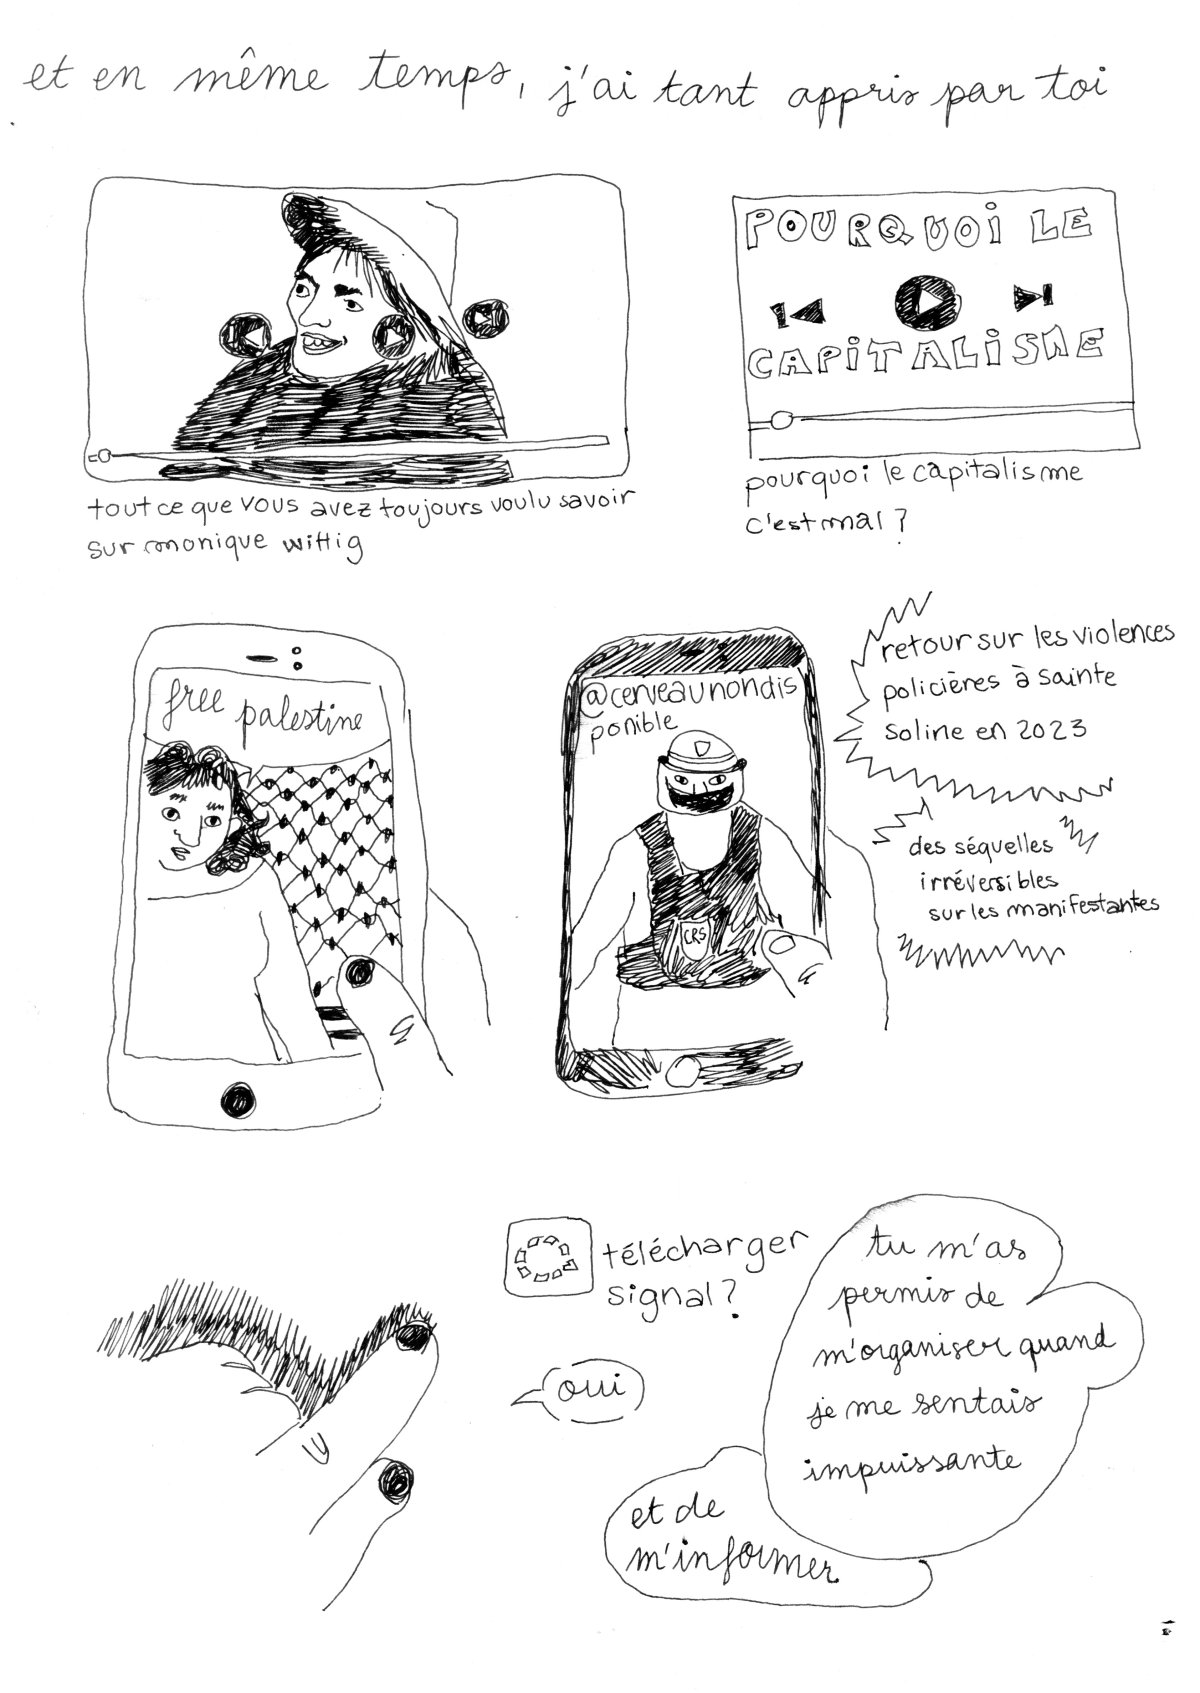 et en même temps, j'ai tant appris par toi
tout ce que vous avez toujours voulu savoir
sur monique wittig
POURQUOI LE
CAPITALISME
pourquoi le capitalisme
c'est mal ?
free palestine
@cerveaunondis
ponible
CRS
retour sur les violences
policières à sainte
soline en 2023
des séquelles
irréversibles
sur les manifestantes
télécharger
signal ?
oui
tu m'as
permis de
m'organiser quand
je me sentais
impuissante
et de
m'informer